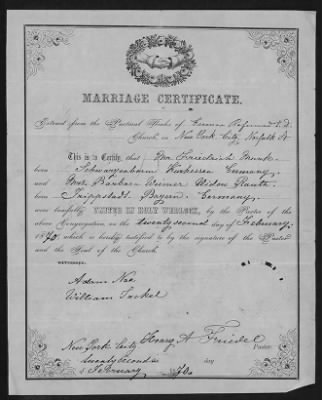 MARRIAGE CERTIFICATE.
Extract from the Pastoral Works of German Reformed P. D.
Church, in New York City, Norfolk St
This is to Certify, that Mr Friedrich Munk
born Schwarzenborn Kurhessen Germany
and Mrs Barbara Weimer Widow
born Trippstadt Bayern Germany
were lawfully UNITED IN HOLY WEDLOCK, by the Pastor of the
above Congregation, on the twenty second day of February
1870, which is hereby testified to by the signature of the Pastor
and the Seal of the Church.
WITNESSES.
Adam Nee
William
New York City Henry A Friedel Pastor.
twenty second day
of February 1870.